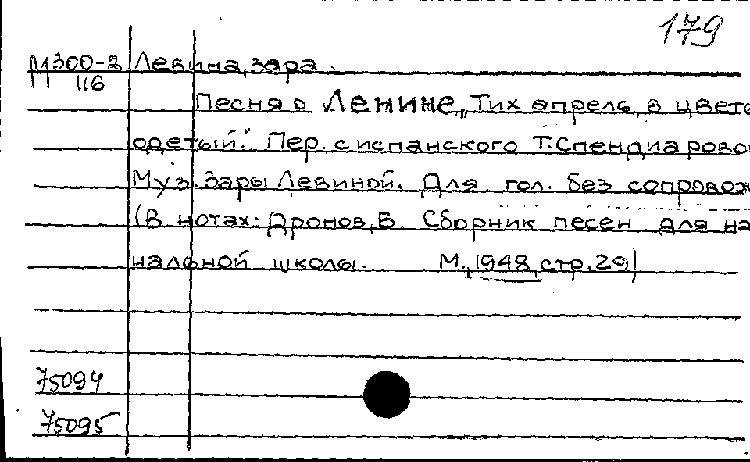 179
М300-2 Левина, Зара.
116
Песня о Ленине „Тих апрель, в цвето
одетый." Пер. с испанского Т.Спендиарово
Муз. Зары Левиной. Для гол. без сопровож
(В нотах: Дронов, В. Сборник песен для на
нальной школы. М., 1948, стр. 29)
75094
75095